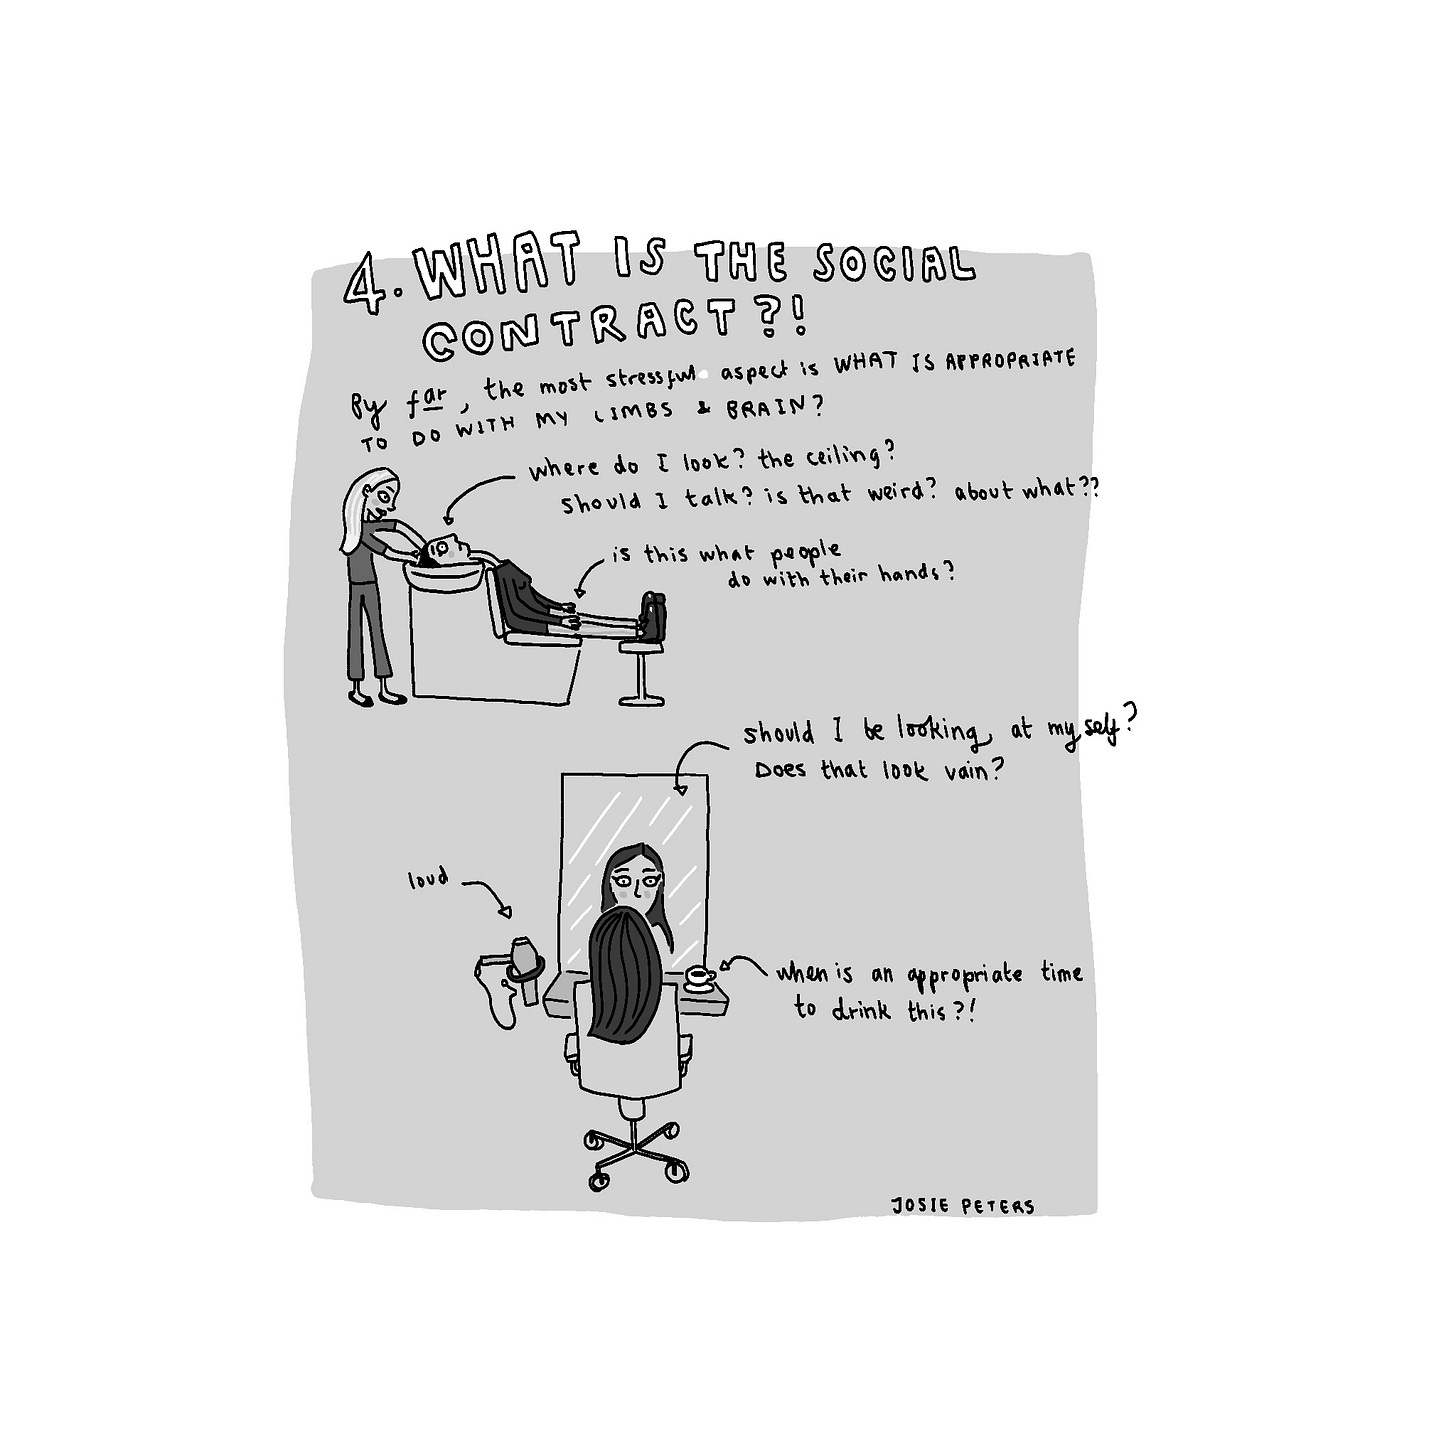 4. WHAT IS THE SOCIAL
CONTRACT?!
By far, the most stressful aspect is WHAT IS APPROPRIATE
TO DO WITH MY LIMBS & BRAIN?
where do I look? the ceiling?
should I talk? is that weird? about what??
is this what people
do with their hands?
should I be looking at myself?
Does that look vain?
loud
when is an appropriate time
to drink this?!
JOSIE PETERS